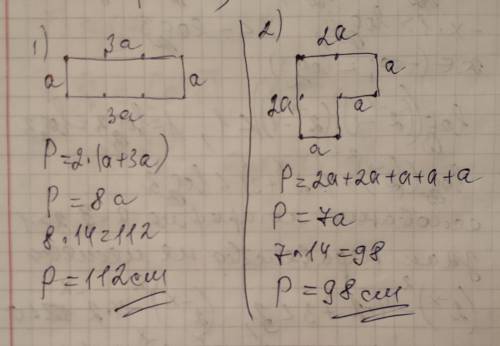 1)
3a
a a
3a
P=2·(a+3a)
P=8a
8·14=112
P=112см
2)
2a
a
2a
a
a
P=2a+2a+a+a+a
P=7a
7·14=98
P=98см